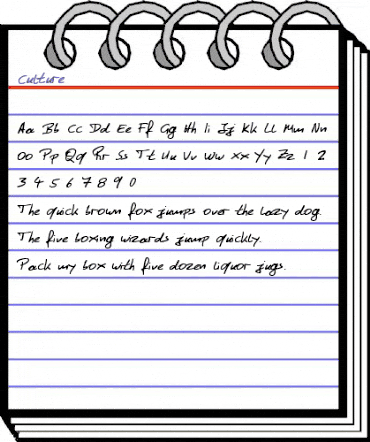 Culture
Aa Bb Cc Dd Ee Ff Gg Hh Ii Jj Kk Ll Mm Nn
Oo Pp Qq Rr Ss Tt Uu Vv Ww Xx Yy Zz 1 2
3 4 5 6 7 8 9 0
The quick brown fox jumps over the lazy dog.
The five boxing wizards jump quickly.
Pack my box with five dozen liquor jugs.